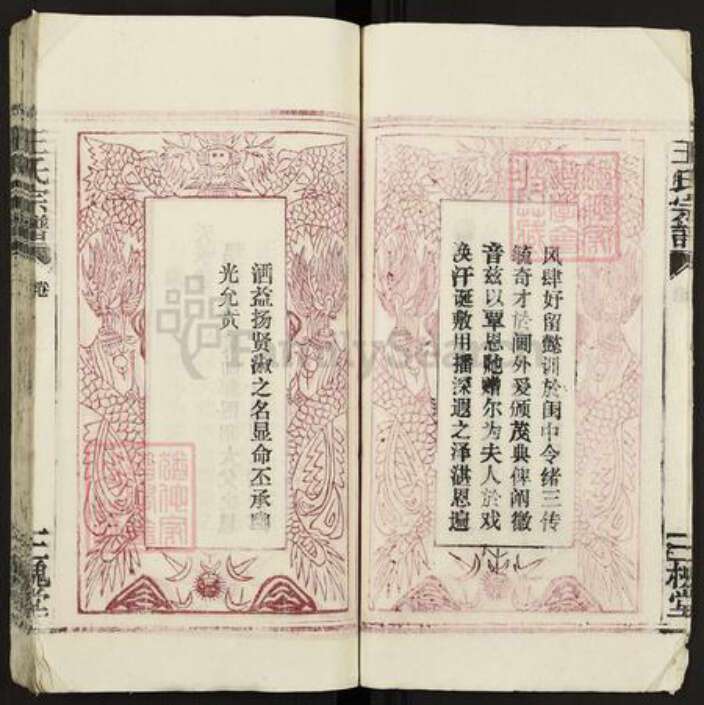 王氏宗譜
三槐堂
风肆好留懿训於闺中令绪三传
毓奇才於阃外爰颁茂典俾阐徽
音兹以覃恩貤赠尔为夫人於戏
涣汗诞敷用播深遐之泽湛恩遍
洒益扬贤淑之名显命丕承幽
光允贲
王氏宗譜
卷
三槐堂
FamilySearch